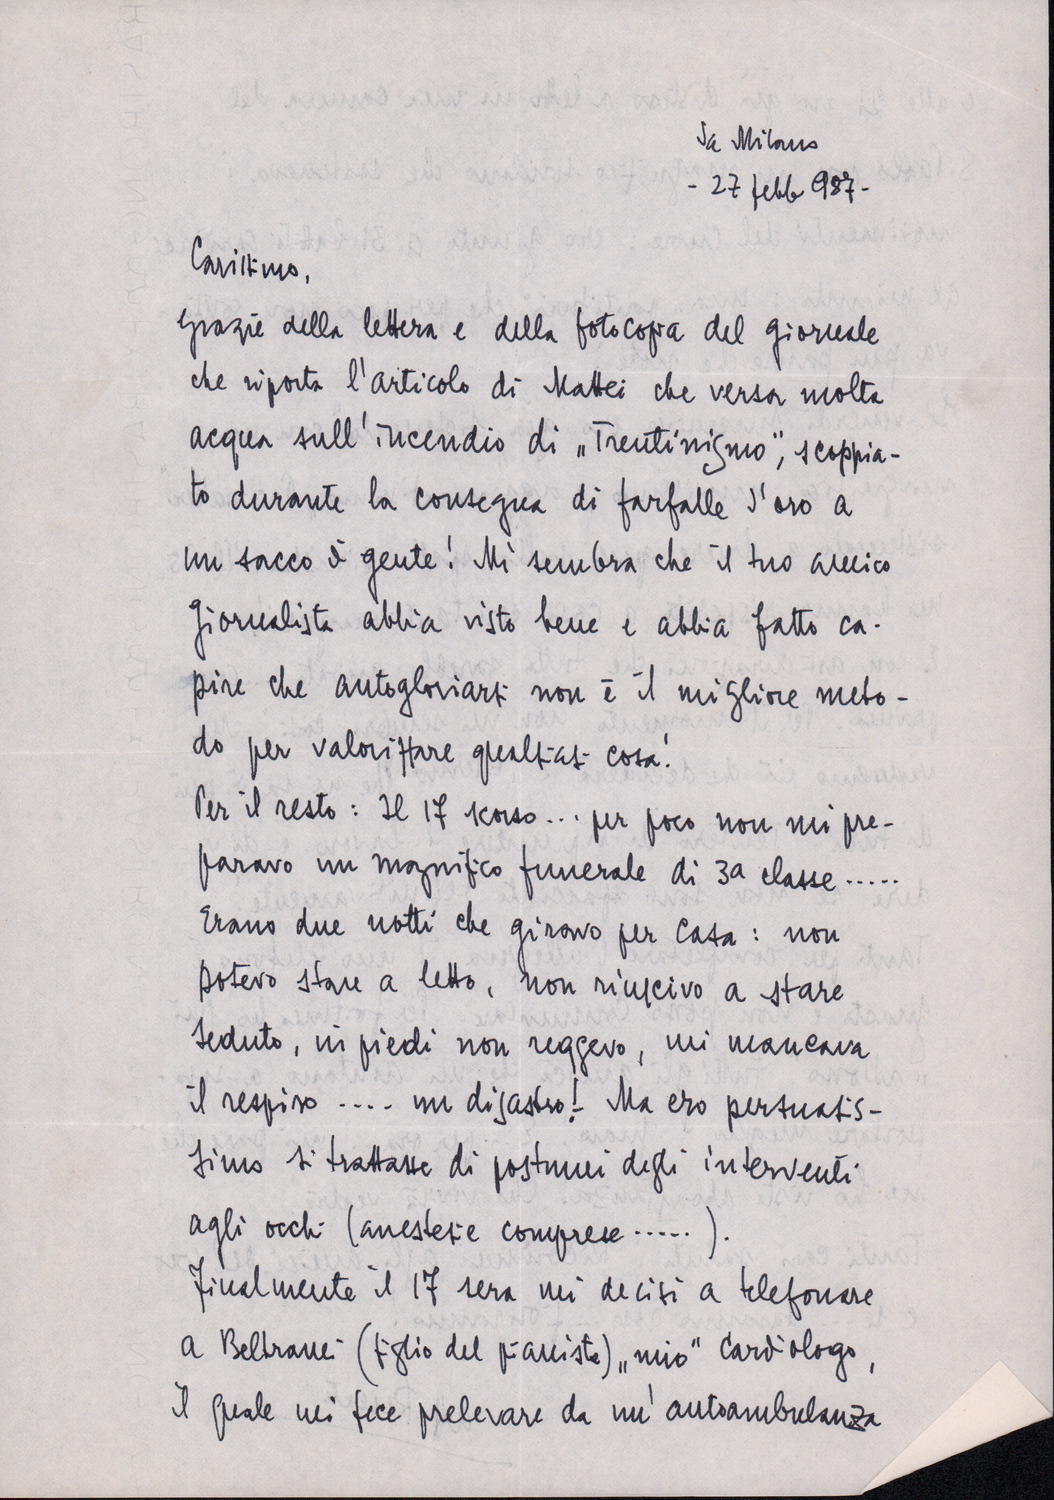 da Milano
- 27 febb 987-
Carissimo,
grazie della lettera e della fotocopia del giornale
che riporta l'articolo di Mattei che versa molta
acqua sull'incendio di „Trentinismo", scoppia-
to durante la consegna di farfalle d'oro a
un sacco di gente! Mi sembra che il tuo amico
giornalista abbia visto bene e abbia fatto ca-
pire che autogloriarsi non è il migliore meto-
do per valorizzare qualsiasi cosa!
Per il resto: Il 17 scorso... per poco non mi pre-
paravo un magnifico funerale di 3a classe.....
Erano due notti che giravo per casa: non
potevo stare a letto, non riuscivo a stare
seduto, in piedi non reggevo, mi mancava
il respiro .... un disastro! Ma ero persuasis-
simo si trattasse di postumi degli interventi
agli occhi (anestesie comprese.....).
Finalmente il 17 sera mi decisi a telefonare
a Beltrami (figlio del pianista) „mio" cardiologo,
il quale mi fece prelevare da un'autoambulanza